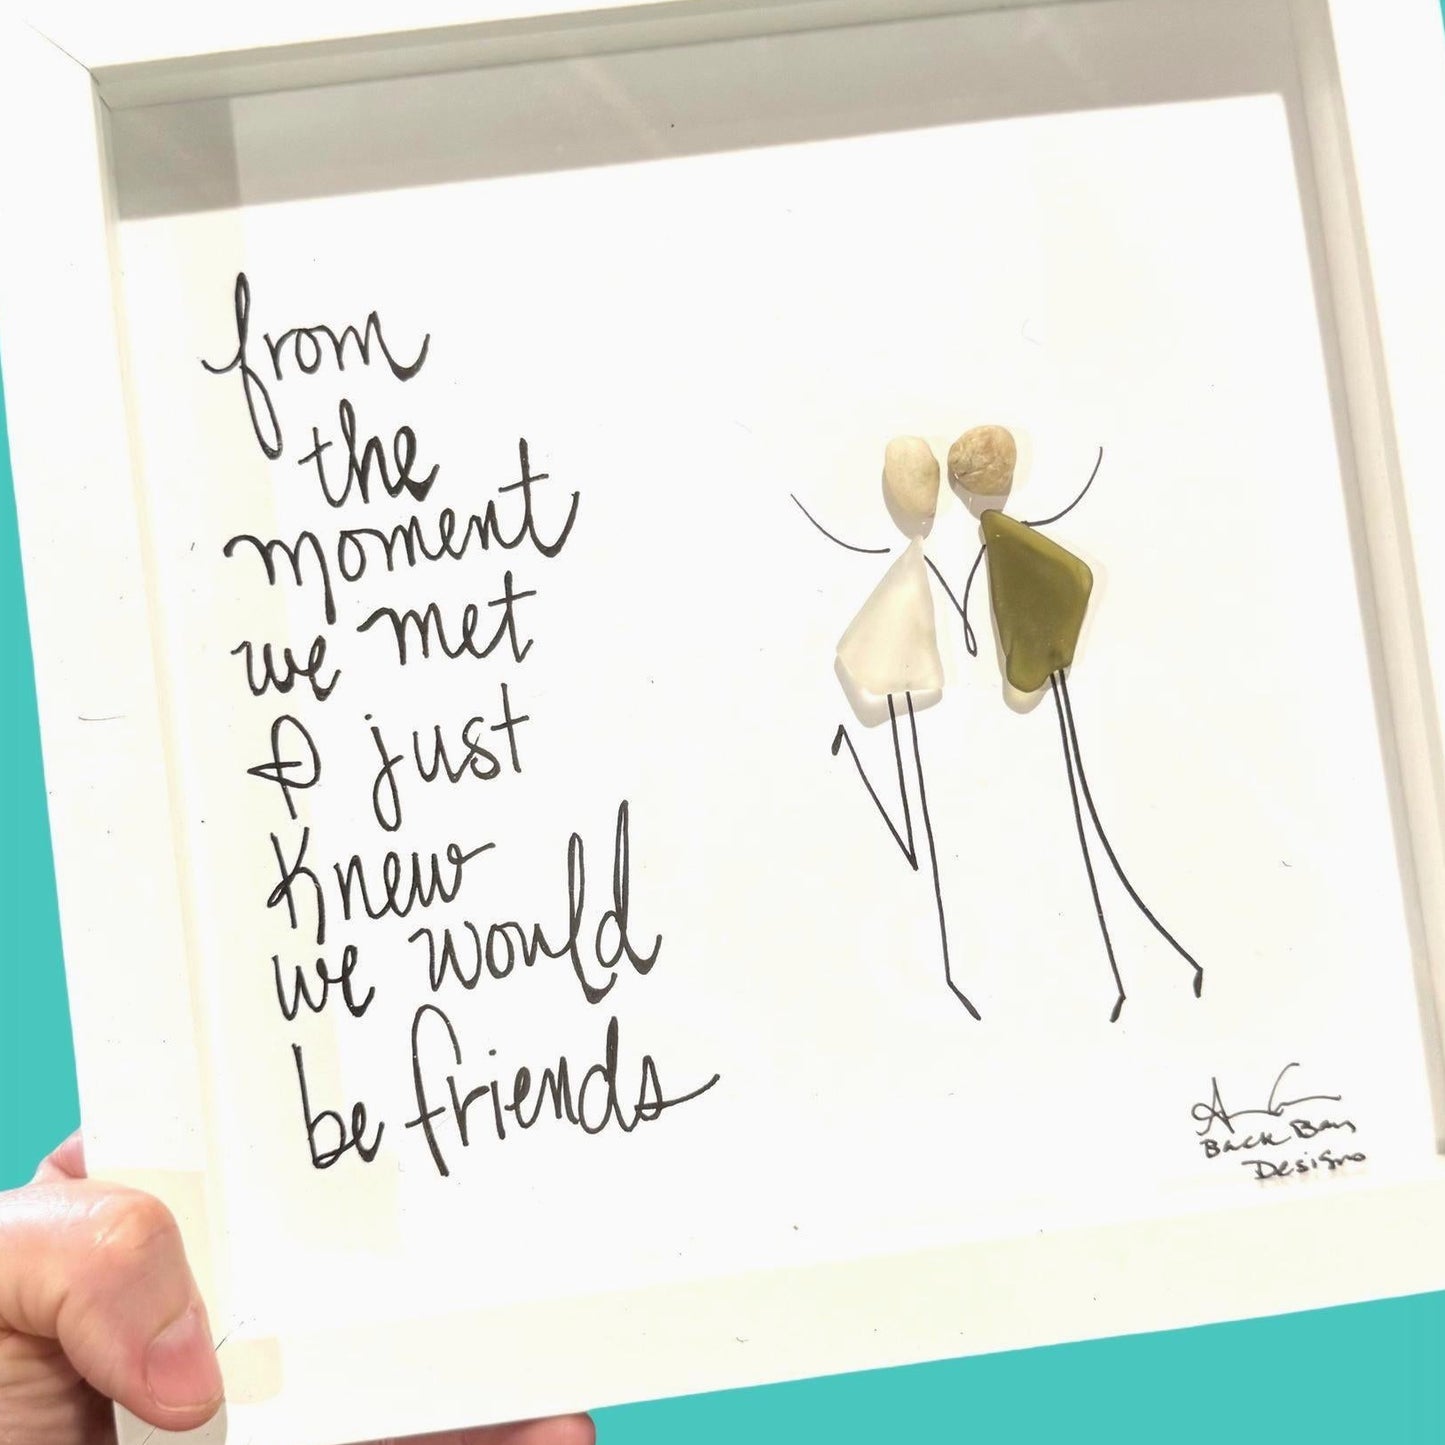 from
the
moment
we met
I just
knew
we would
be friends
Back Bay
Designs